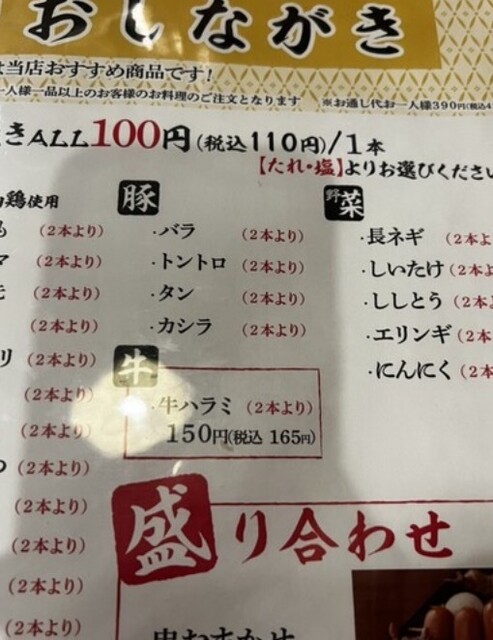 おしながき
当店おすすめ商品です!
一人様一品以上のお客様のお料理のご注文となります ※お通し代お一人様390円(税込4
きALL100円(税込110円)/1本
【たれ・塩】よりお選びください
鶏使用
(2本より)
マ (2本より)
(2本より)
(2本より)
リ (2本より)
(2本より)
(2本より)
(2本より)
(2本より)
(2本より)
(2本より)
(2本より)
豚
・バラ (2本より)
・トントロ (2本より)
・タン (2本より)
・カシラ (2本より)
牛
・牛ハラミ (2本より)
150円(税込 165円)
野菜
・長ネギ (2本よ
・しいたけ (2本よ
・ししとう (2本
・エリンギ (2本
・にんにく (2本
盛り合わせ